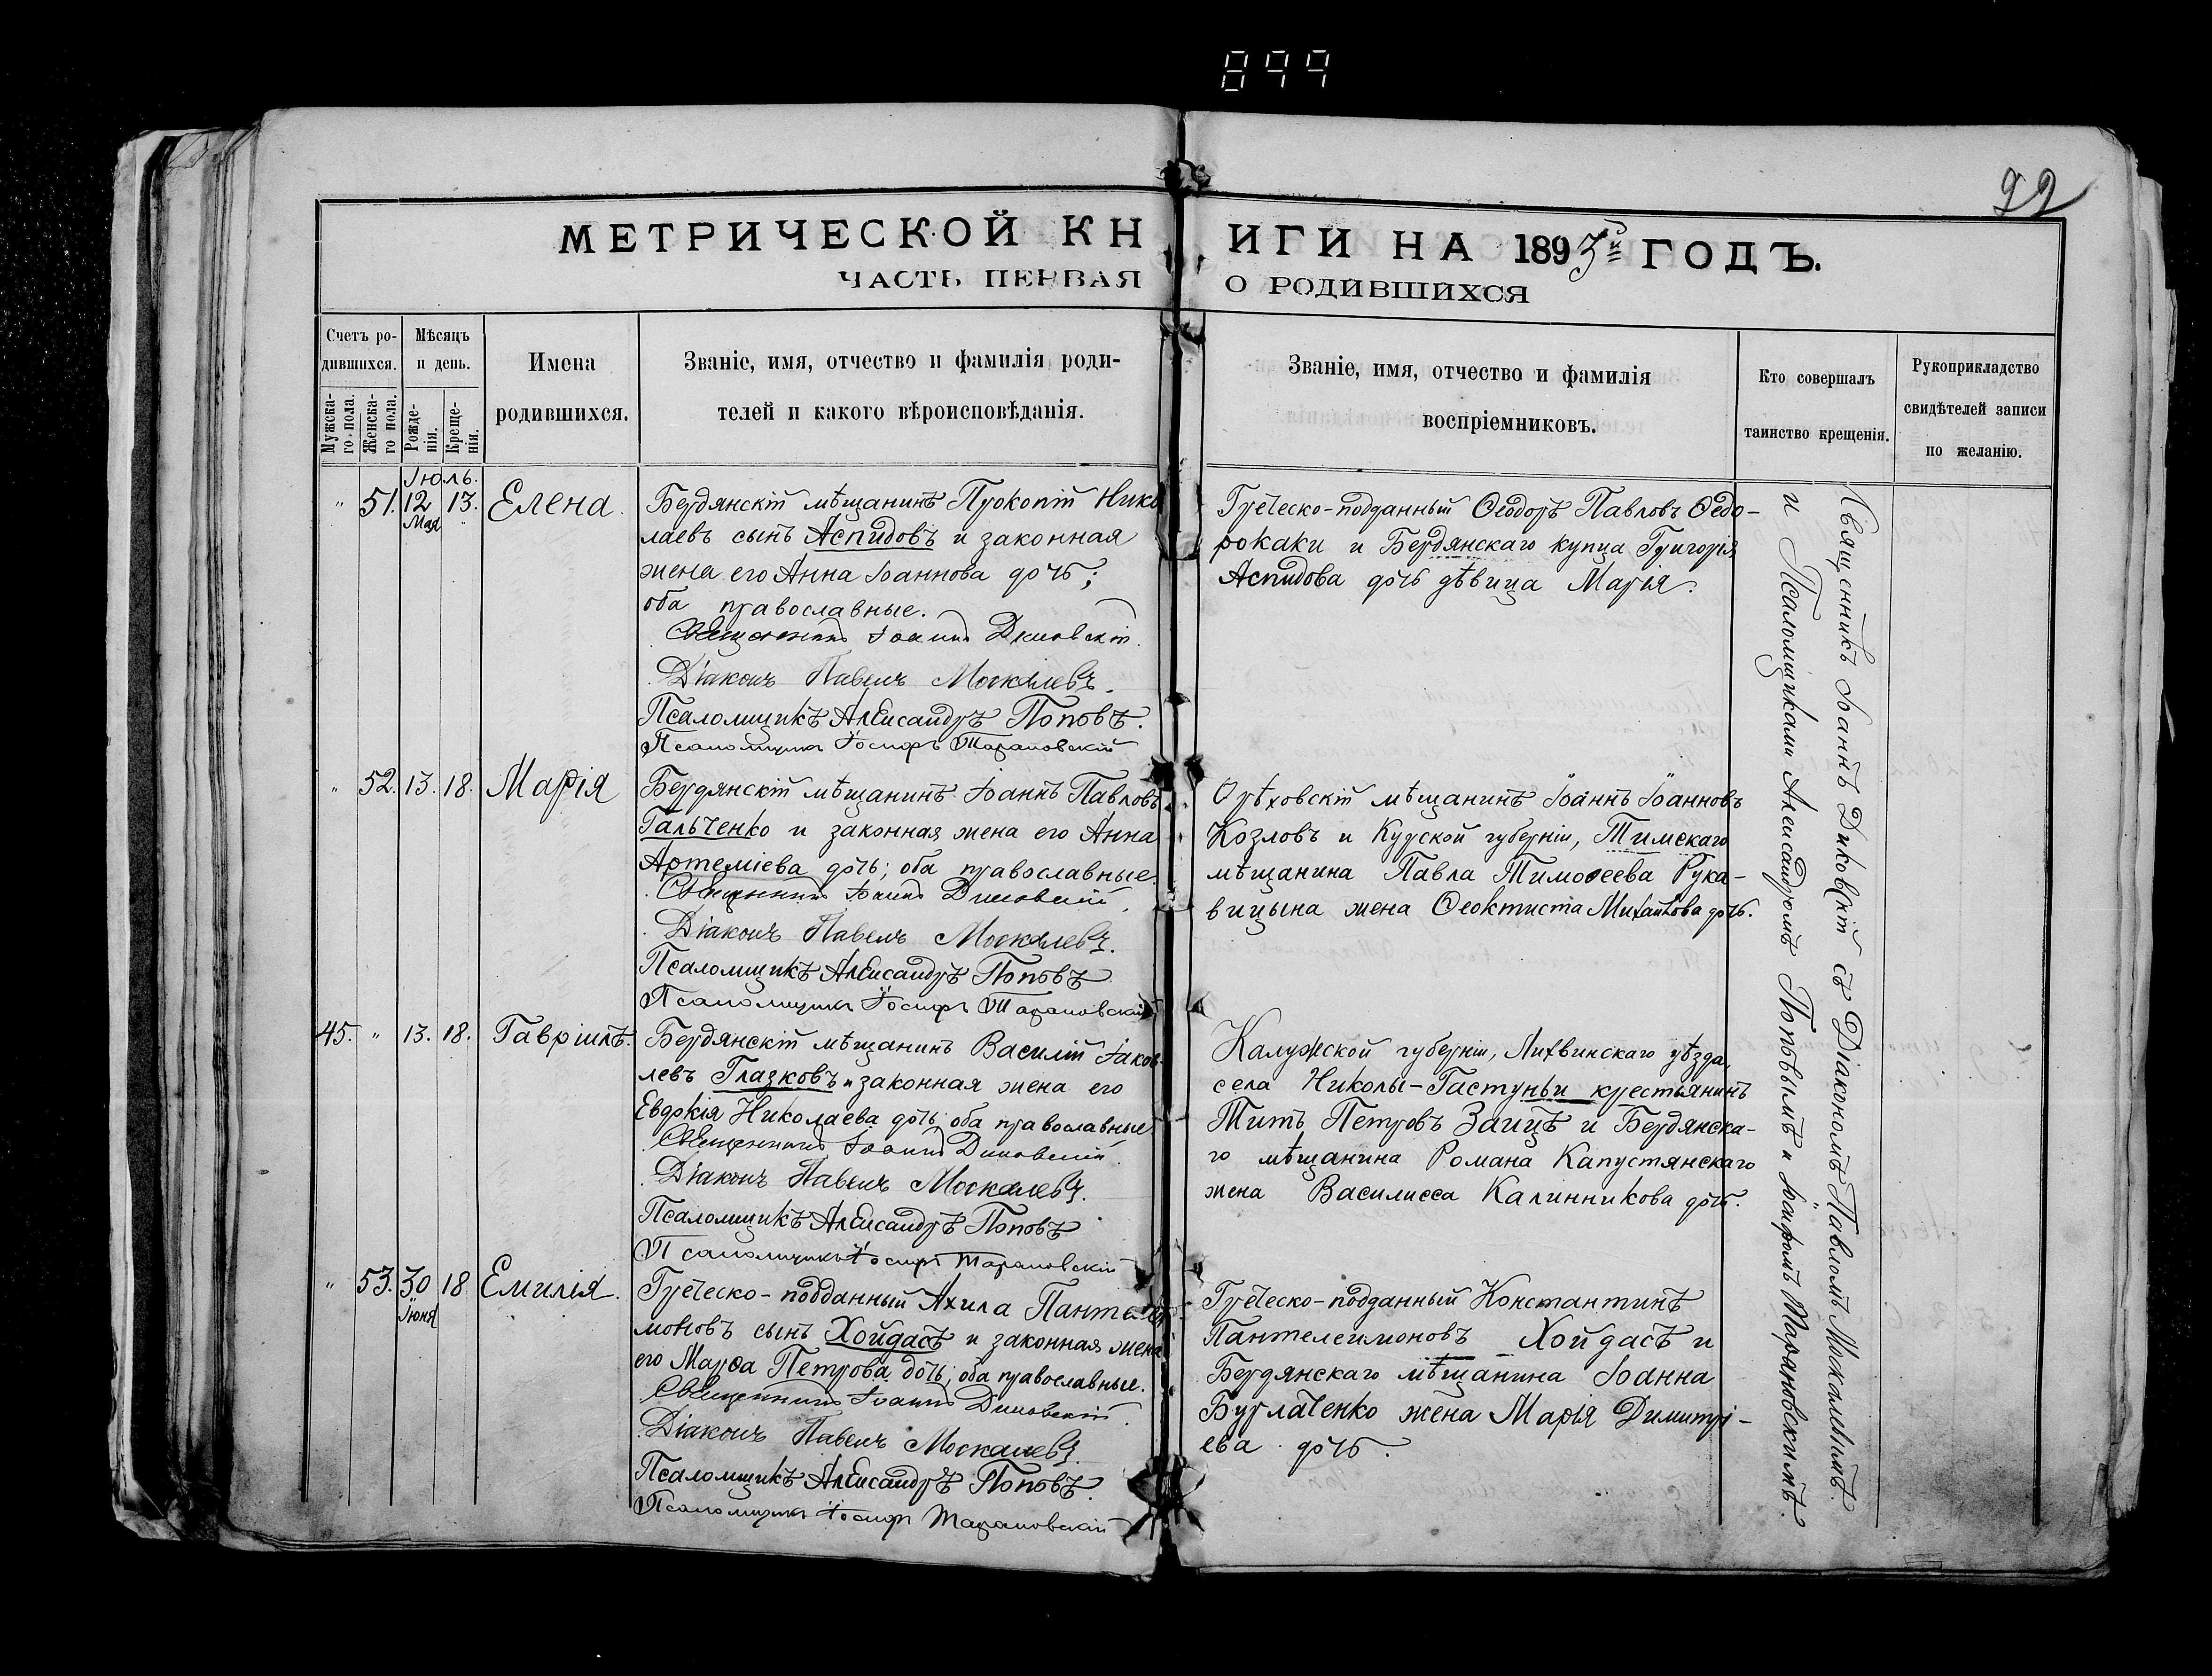 899
22
МЕТРИЧЕСКОЙ КНИГИ НА 1893й ГОДЪ.
ЧАСТЬ ПЕРВАЯ О РОДИВШИХСЯ
Счетъ ро-
дившихся.
Мужска-
го пола.
Женска-
го пола.
Мѣсяцъ
и день.
Рожде-
нія.
Креще-
нія.
Имена
родившихся.
Званіе, имя, отчество и фамилія роди-
телей и какого вѣроисповѣданія.
Званіе, имя, отчество и фамилія
воспріемниковъ.
Кто совершалъ
таинство крещенія.
Рукоприкладство
свидѣтелей записи
по желанію.
Іюль.
" 51. 12 13. Елена.
Мая "
Бердянскій мѣщанинъ Прокопій Нико
лаевъ сынъ Аспидовъ и законная
жена его Анна Іоаннова дочь;
оба православные.
Священникъ Іоаннъ Диковскій.
Діаконъ Павелъ Москалевъ.
Псаломщикъ Александръ Поповъ.
Псаломщикъ Іосифъ Тарановскій
Греческо-подданный Ѳеодоръ Павловъ Ѳедо-
рокаки и Бердянскаго купца Григорія
Аспидова дочь дѣвица Марія.
" 52. 13. 18. Марія
Бердянскій мѣщанинъ Іоаннъ Павловъ
Гальченко и законная жена его Анна
Артеміева дочь; оба православные.
Священникъ Іоаннъ Диковскій.
Діаконъ Павелъ Москалевъ.
Псаломщикъ Александръ Поповъ
Псаломщикъ Іосифъ Тарановскій
Орѣховскій мѣщанинъ Іоаннъ Іоанновъ
Козловъ и Курской губерніи, Тимскаго
мѣщанина Павла Тимоѳеева Рука-
вицына жена Ѳеоктиста Михаилова дочь.
45. " 13. 18. Гавріилъ.
Бердянскій мѣщанинъ Василій Іаков
левъ Глазковъ и законная жена его
Евдокія Николаева дочь; оба православные
Священникъ Іоаннъ Диковскій.
Діаконъ Павелъ Москалевъ.
Псаломщикъ Александръ Поповъ
Псаломщикъ Іосифъ Тарановскій
Калужской губерніи, Лихвинскаго уѣзда,
села Николы-Гастуньи крестьянинъ
Титъ Петровъ Заицъ и Бердянска-
го мѣщанина Романа Капустянскаго
жена Василисса Калинникова дочь.
" 53. 30 18 Емилія.
Іюня
Греческо-подданный Ахила Пантелеи
моновъ сынъ Хойдасъ и законная жена
его Марѳа Петрова дочь; оба православные.
Священникъ Іоаннъ Диковскій.
Діаконъ Павелъ Москалевъ.
Псаломщикъ Александръ Поповъ.
Псаломщикъ Іосифъ Тарановскій
Греческо-подданный Константинъ
Пантелеимоновъ Хойдасъ и
Бердянскаго мѣщанина Іоанна
Бурлаченко жена Марія Димитрі-
ева дочь.
Священникъ Іоаннъ Диковскій съ Діакономъ Павломъ Москалевымъ
и Псаломщиками Александромъ Поповымъ и Іосифомъ Тарановскимъ.